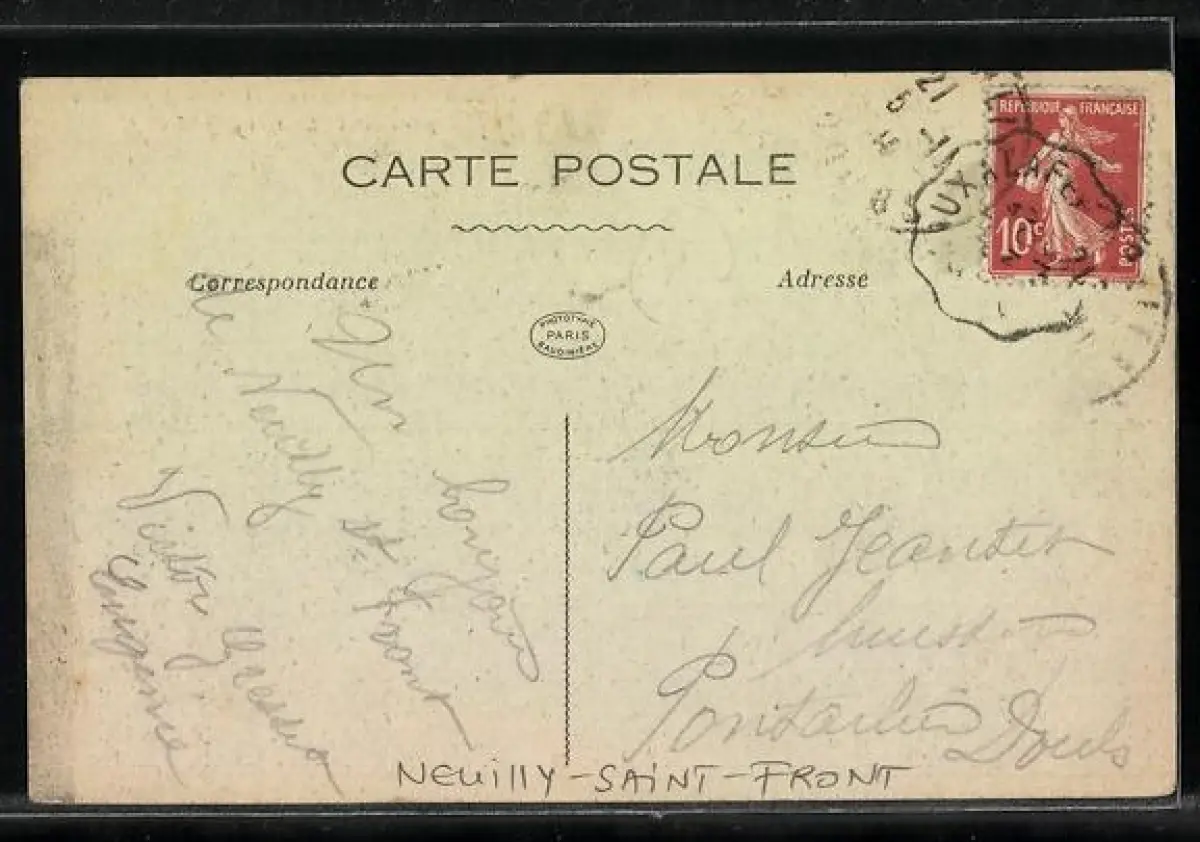 CARTE POSTALE
Correspondance
Adresse
PHOTOTYPIE
PARIS
BAUDINIÈRE
RÉPUBLIQUE FRANÇAISE
10c
POSTES
21
Un bonjour
de Neuilly St Front
Victor
Eugénie
Monsieur
Paul
Pontarlier Doubs
NEUILLY-SAINT-FRONT